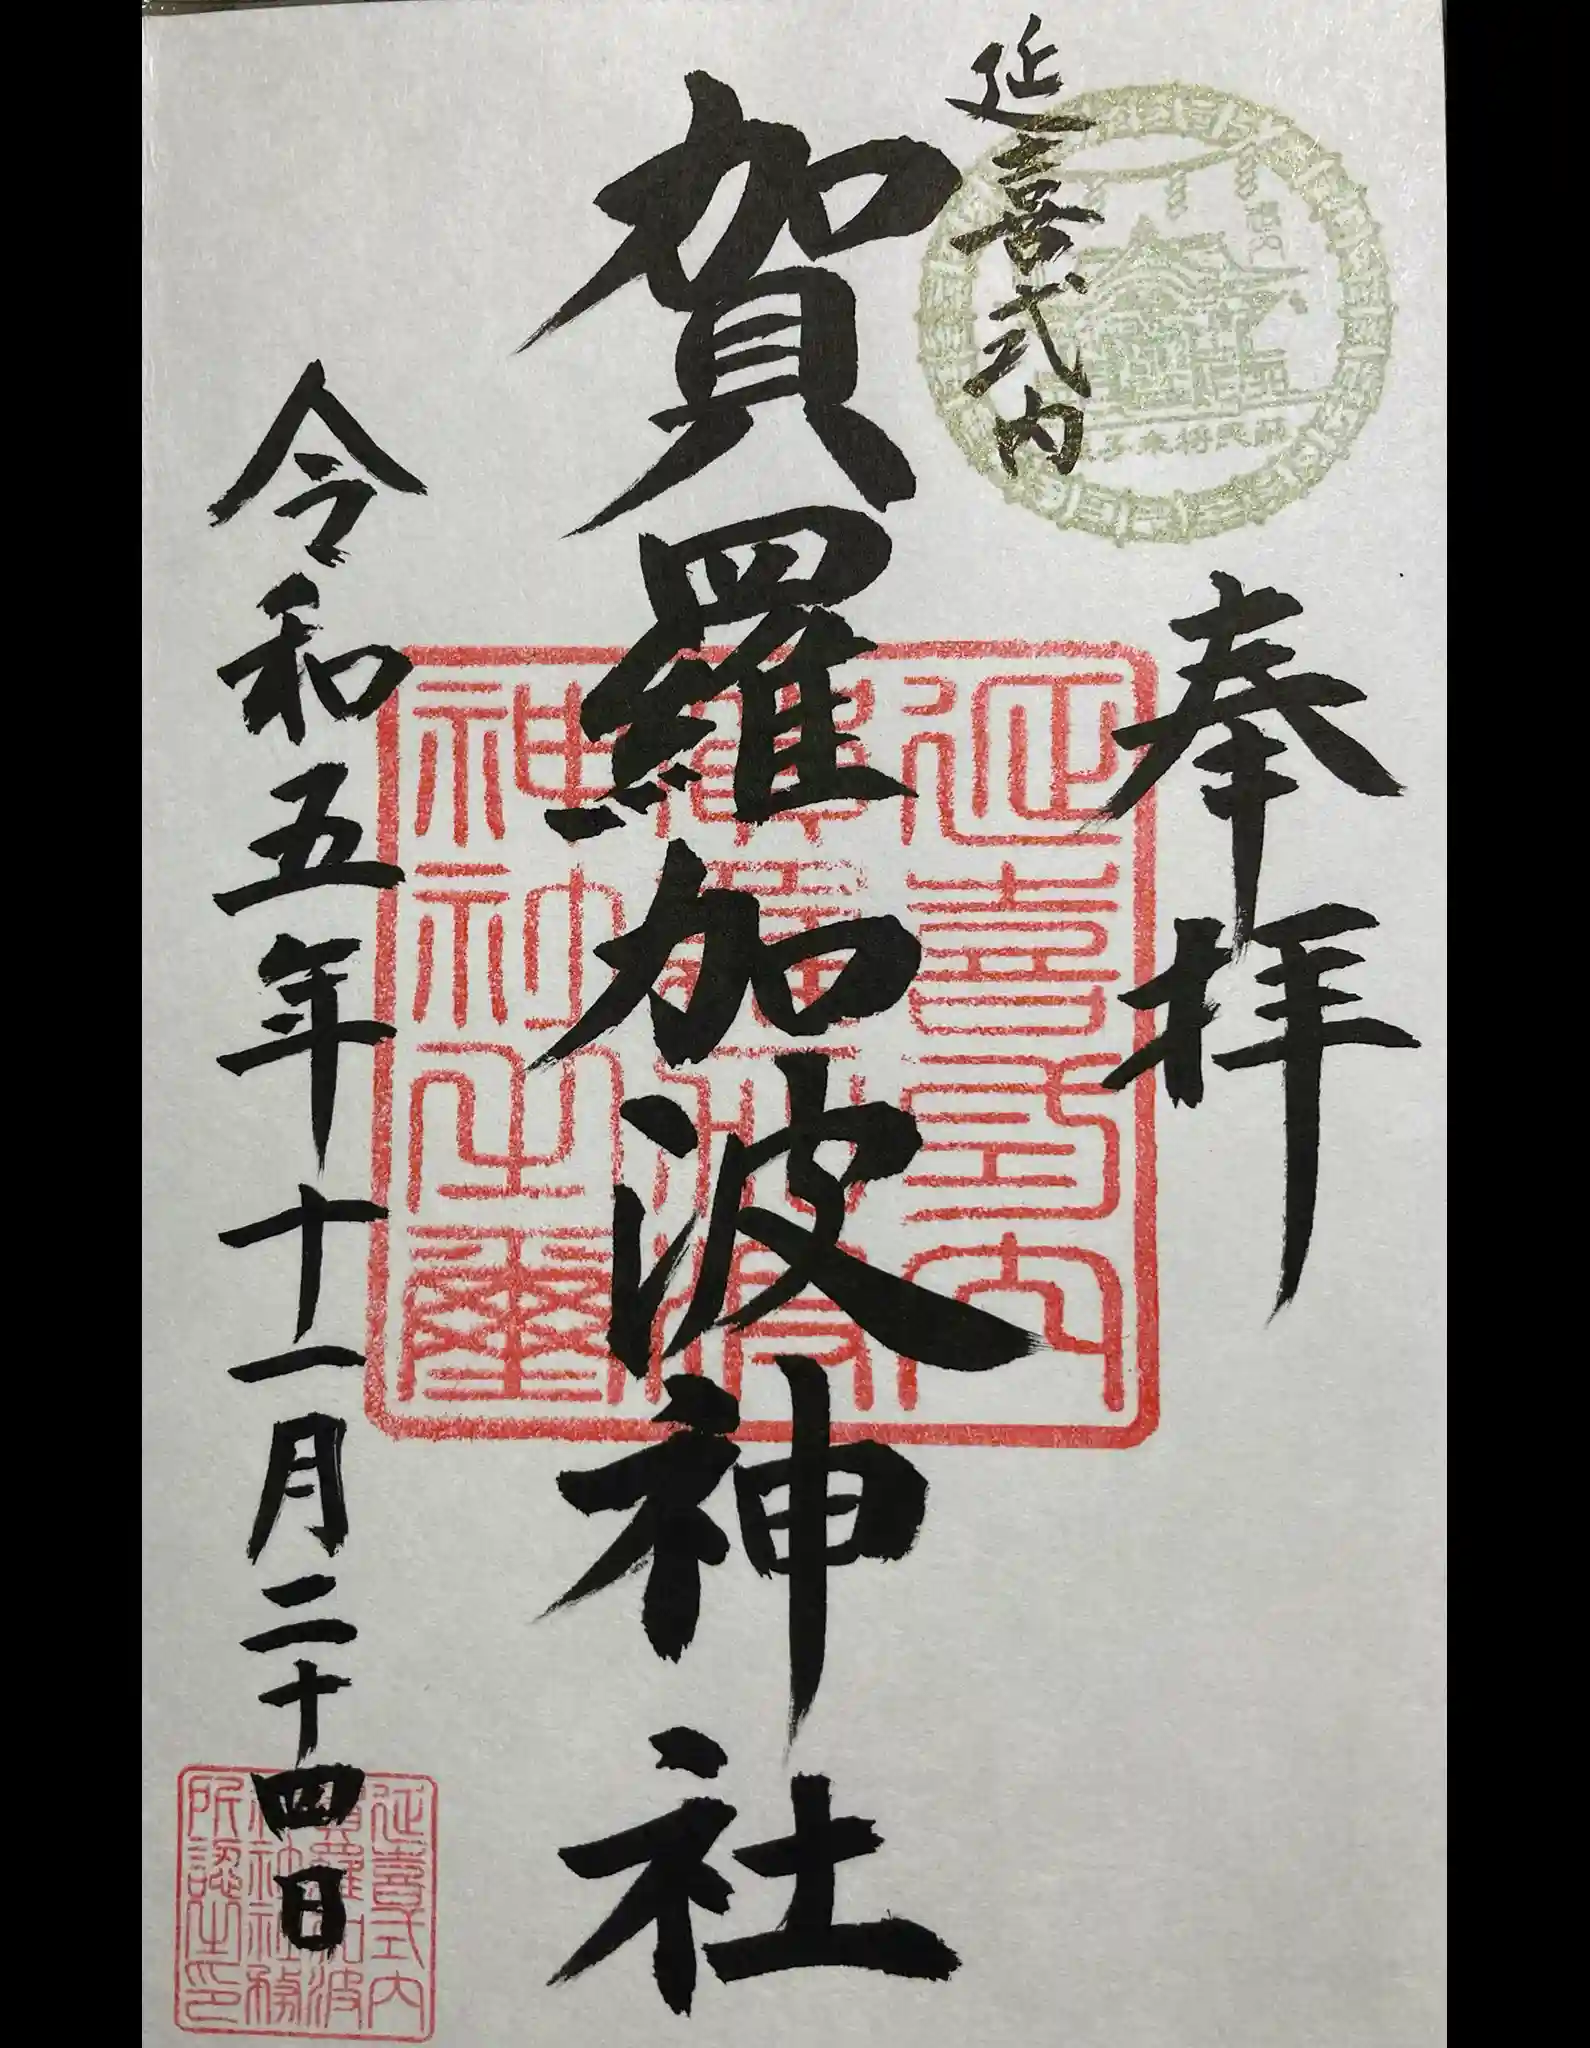 奉拝
延喜式内
賀羅加波神社
令和五年十一月二十四日
延喜式内
神社之璽
延喜式内
賀羅加波
神社社務
所認之印